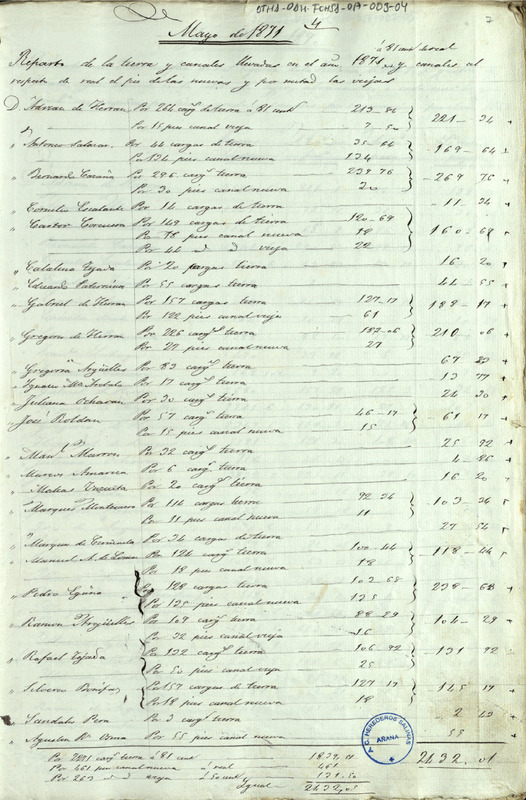 OTHA-DDH-FCHSJ-OA-009-04
Mayo de 1871 4
7
á 81 cent local
Reparto de la tierra y canales llevadas en el año 1871 y canales al
respeto de real el pie de las nuevas y por mitad las viejas
D. Adrean de Herran Por 264 carg.s de tierra á 81 cent 213-84
221-34
Por 15 pies canal vieja 7-50
" Antonio Salazar Por 44 cargas de tierra 35-64
169-64
Por 134 pies canal nueva 134
" Bernardo Por 296 carg.s tierra 239 76
269 76
Por 30 pies canal nueva 30
" Cornelio Escalante Por 14 cargas de tierra 11 34
" Castor Corcuera Por 149 cargas de tierra 120-69
160-69
Por 18 pies canal nueva 18
Por 44 d d vieja 22
" Catalina Tejada Por 20 cargas tierra 16 20
" Eduardo Paternina Por 55 cargas tierra 44-55
" Gabriel de Herran Por 157 cargas tierra 127-17
188-17
Por 122 pies canal vieja 61
" Gregorio de Herran Por 226 carg.s tierra 183-06
210 06
Por 27 pies canal nueva 27
" Gregoria Argüelles Por 83 carg.s tierra 67 23
" Ignacio Por 17 carg.s tierra 13 77
" Juliana Ochavan Por 30 carg.s tierra 24 30
" José Roldan Por 57 carg.s tierra 46-17
61 17
Por 15 pies canal nueva 15
" Man.l Por 32 carg.s tierra 25 92
" Marcos Por 6 carg.s tierra 4-86
" Matias Por 20 carg.s tierra 16 20
" Marques Por 114 cargas tierra 92 34
103-34
Por 11 pies canal nueva 11
" Marques de Por 34 cargas de tierra 27 54
" Manuel A. de Por 124 carg.s tierra 100-44
118-44
Por 18 pies canal nueva 18
" Pedro Egüia Por 128 cargas tierra 103-68
238-68
Por 135 pies canal nueva 135
" Ramon Argüelles Por 109 carg.s tierra 88-29
104-29
Por 32 pies canal vieja 16
" Rafael Tejada Por 132 carg.s tierra 106-92
131 92
Por 50 pies canal vieja 25
" Silverio Por 157 cargas de tierra 127 17
145 17
Por 18 pies canal nueva 18
" Por 3 carg.s tierra 2 43
" Agustin Por 55 pies canal nueva 55
2432.01
Por 2271 carg.s tierra á 81 cent 1839,51
Por 461 pies canal nueva á real 461
Por 263 d d vieja á 50 cent 131.50
Igual 2432,01
P. C. HEREDEROS SALINAS
AÑANA